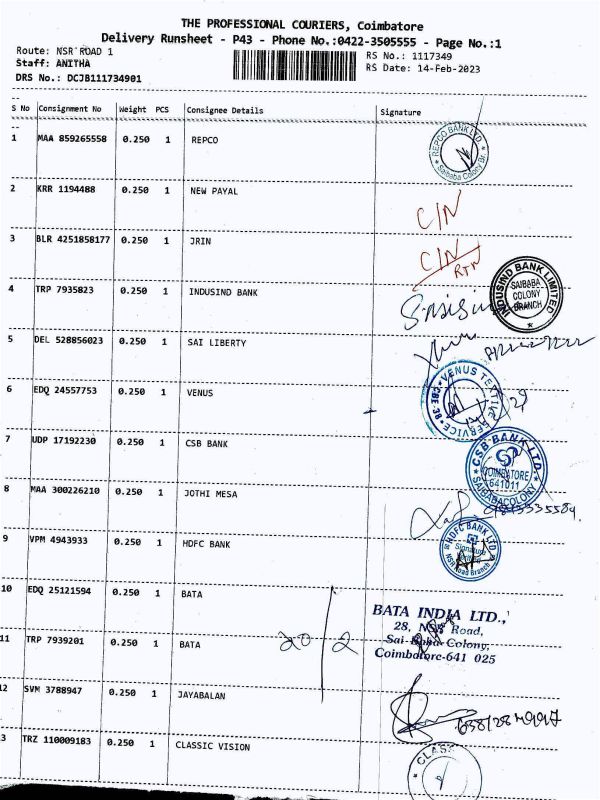 THE PROFESSIONAL COURIERS, Coimbatore
Delivery Runsheet - P43 - Phone No.:0422-3505555 - Page No.:1
Route: NSR ROAD 1
RS No.: 1117349
Staff: ANITHA
RS Date: 14-Feb-2023
DRS No.: DCJB111734901
S No Consignment No Weight PCS Consignee Details Signature
1 MAA 859265558 0.250 1 REPCO
REPCO BANK LTD. Saibaba Colony Br.
2 KRR 1194488 0.250 1 NEW PAYAL
C/N
3 BLR 4251858177 0.250 1 JRIN
C/N
RTN
4 TRP 7935823 0.250 1 INDUSIND BANK
INDUSIND BANK LIMITED
SAIBABA
COLONY
BRANCH
5 DEL 528856023 0.250 1 SAI LIBERTY
6 EDQ 24557753 0.250 1 VENUS
VENUS SERVICE
7 UDP 17192230 0.250 1 CSB BANK
CSB BANK LTD.
COIMBATORE
641011
SAIBABACOLONY
8 MAA 300226210 0.250 1 JOTHI MESA
9 VPM 4943933 0.250 1 HDFC BANK
HDFC BANK LTD
Signature
NSR Road Branch
10 EDQ 25121594 0.250 1 BATA
BATA INDIA LTD.,
28, NSR Road,
Sai Baba Colony,
Coimbatore-641 025
11 TRP 7939201 0.250 1 BATA
20/2
12 SVM 3788947 0.250 1 JAYABALAN
13 TRZ 110009183 0.250 1 CLASSIC VISION